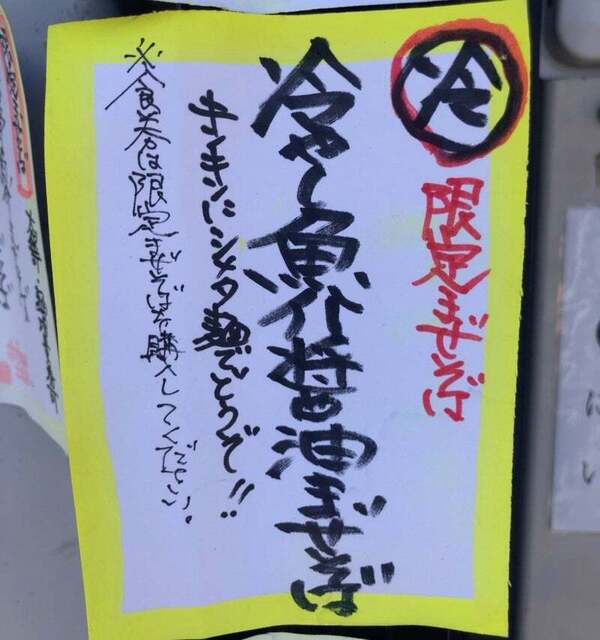 冷
限定まぜそば
冷やし魚介醤油まぜそば
キンキンにシメタ麺でどうぞ!!
※食券は限定まぜそばを購入してください。